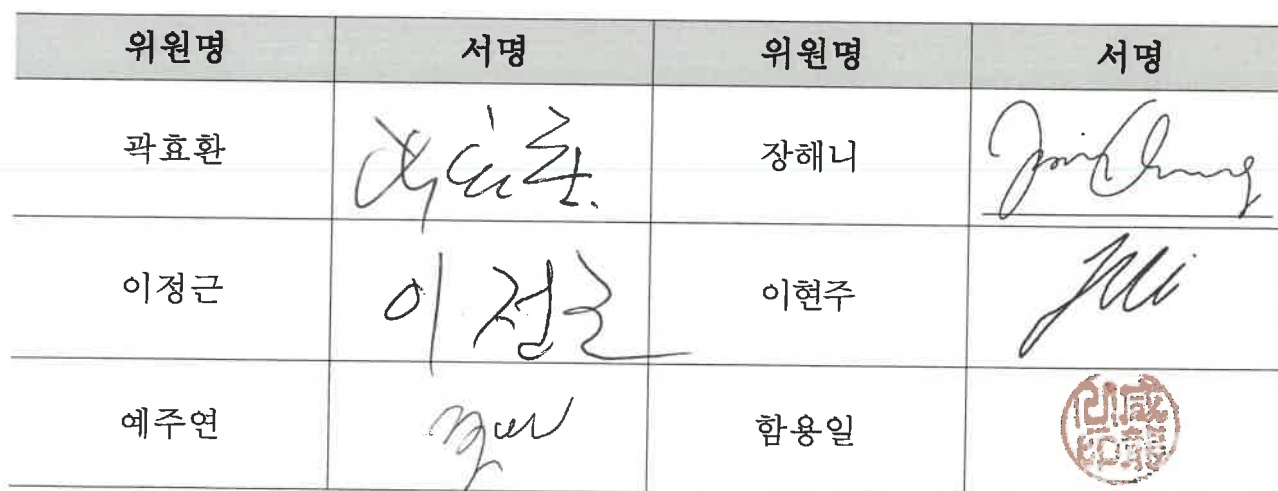 위원명 서명 위원명 서명
곽효환 곽효환 장해니
이정근 이정근 이현주
예주연 함용일